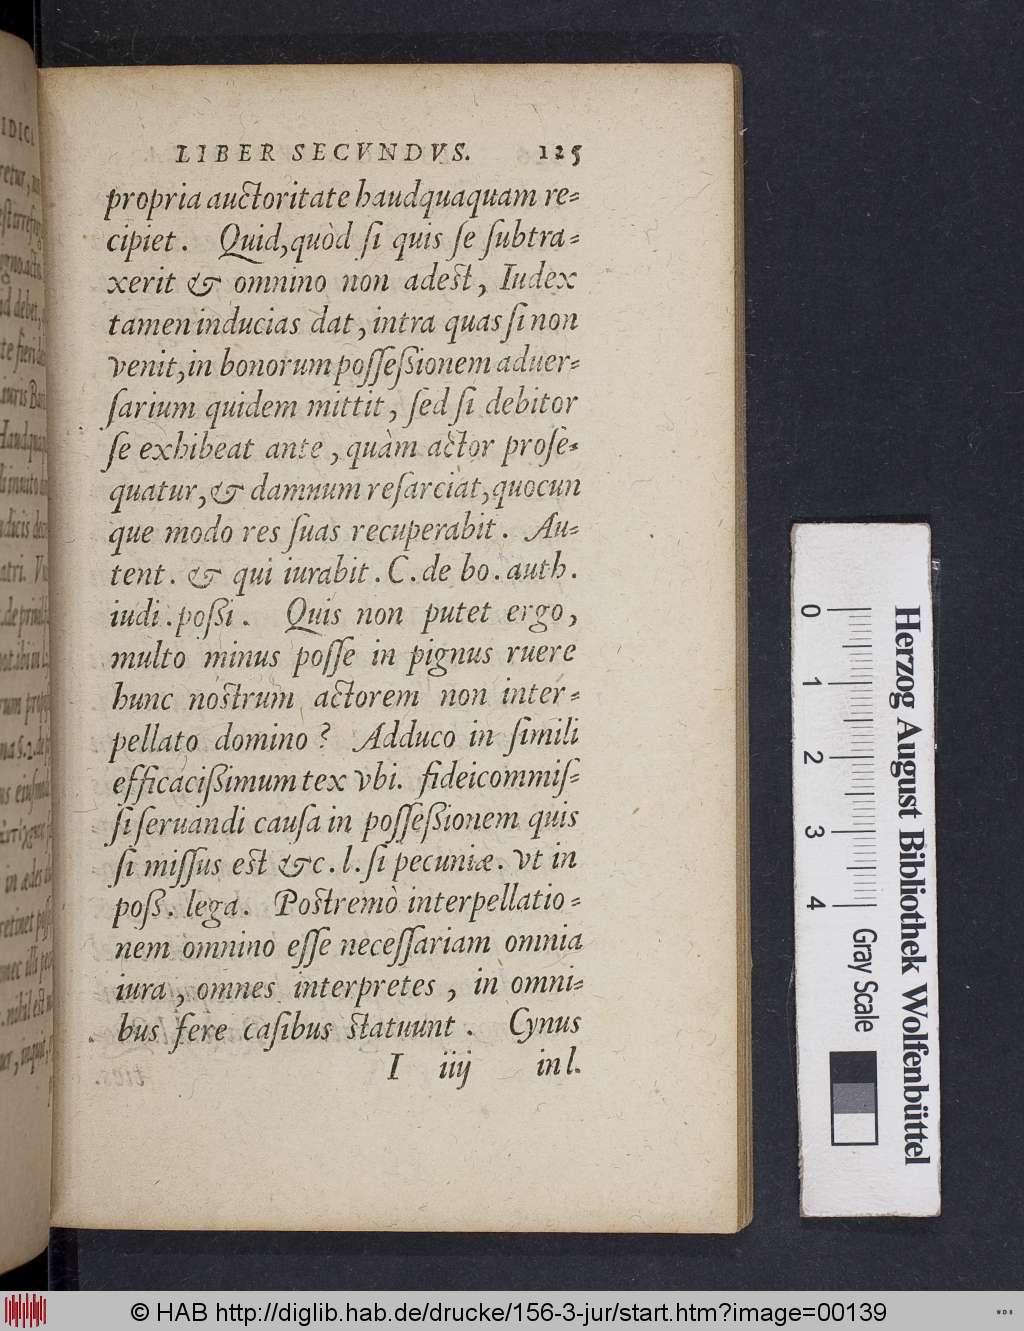 LIBER SECVNDVS. 125
propria auctoritate haudquaquam re=
cipiet. Quid, quòd ſi quis ſe ſubtra=
xerit & omnino non adeſt, Iudex
tamen inducias dat, intra quas ſi non
venit, in bonorum poſſeſsionem aduer=
ſarium quidem mittit, ſed ſi debitor
ſe exhibeat ante, quàm actor proſe=
quatur, & damnum reſarciat, quocun
que modo res ſuas recuperabit. Au=
tent. & qui iurabit. C. de bo. auth.
iudi. poßi. Quis non putet ergo,
multo minus poſſe in pignus ruere
hunc noſtrum actorem non inter=
pellato domino? Adduco in ſimili
efficacißimum tex vbi. fideicommiſ=
ſi ſeruandi cauſa in poſſeßionem quis
ſi miſſus eſt &c. l. ſi pecuniæ. vt in
poß. lega. Poſtremò interpellatio=
nem omnino eſſe neceſſariam omnia
iura, omnes interpretes, in omni=
bus fere caſibus ſtatuunt. Cynus
I iiij in l.
IDICI
Herzog August Bibliothek Wolfenbüttel
0 1 2 3 4 Gray Scale
© HAB http://diglib.hab.de/drucke/156-3-jur/start.htm?image=00139